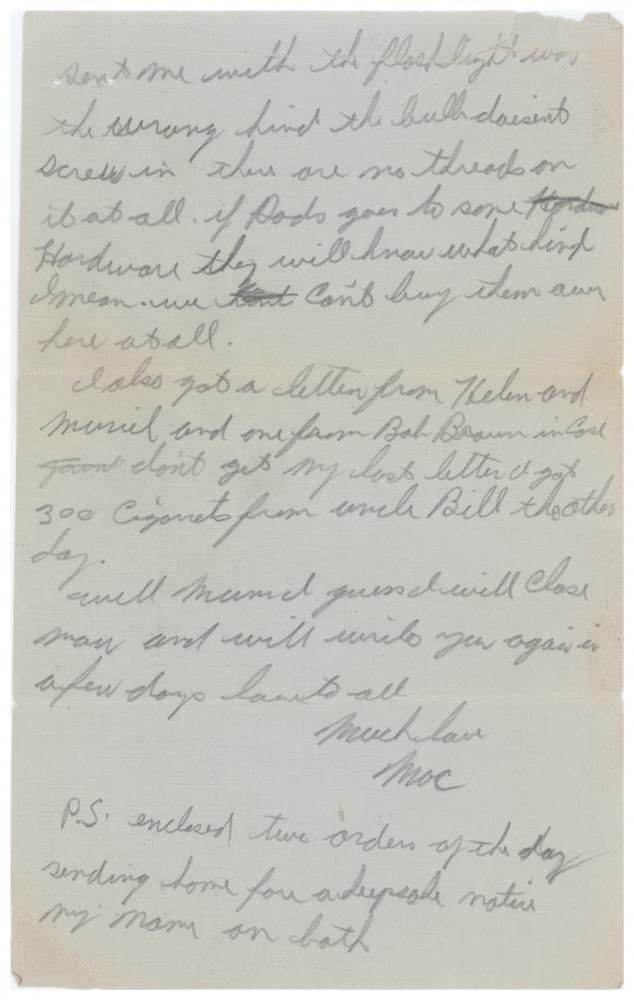 sent me with the flashlight was
the wrong kind the bulb daisent
screw in there are no threads on
it at all. if Dads goes to some
Hardware they will know what kind
I mean. we Can't buy them over
here at all.
I also got a letter from Helen and
Muriel and one from Bob Brown in Case
don't get my last letter I got
300 Cigarets from uncle Bill the other
day.
well Mum I guess I will Close
now and will write you again in
a few days love to all
Much love
Mac
P.S. enclosed two orders of the day
sending home for a keepsake notice
my name on both